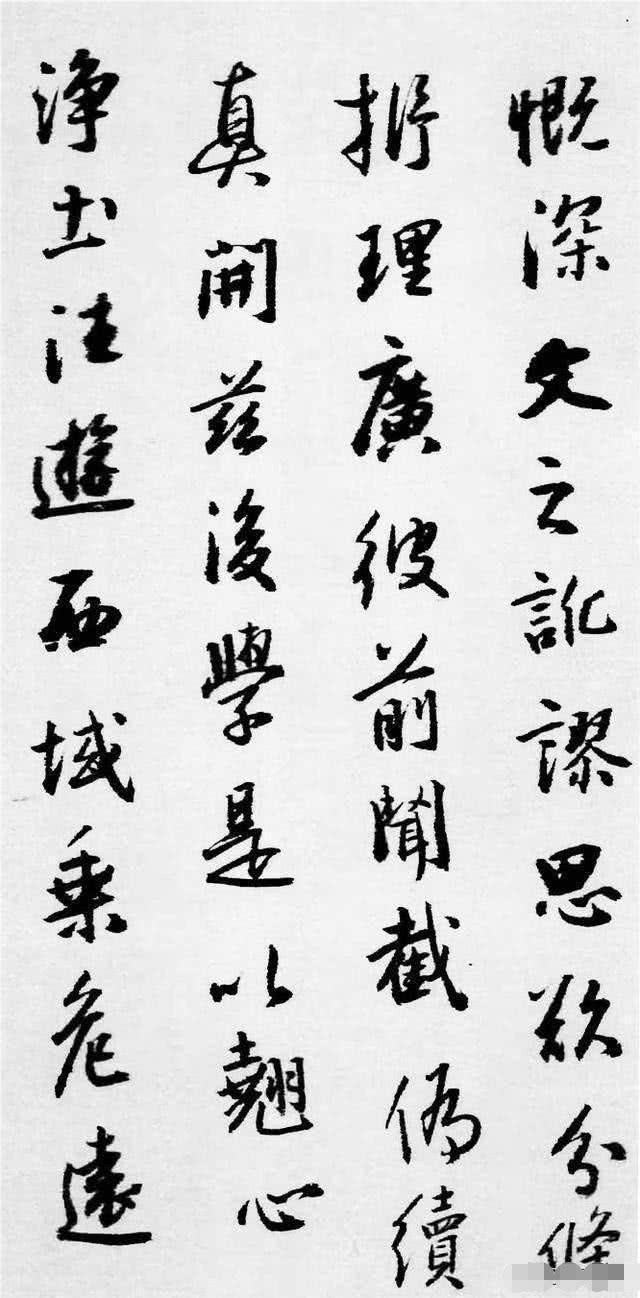 慨深文之訛謬思欲分條
析理廣彼前聞截偽續
真開茲後學是以翹心
淨土往遊西域乘危遠